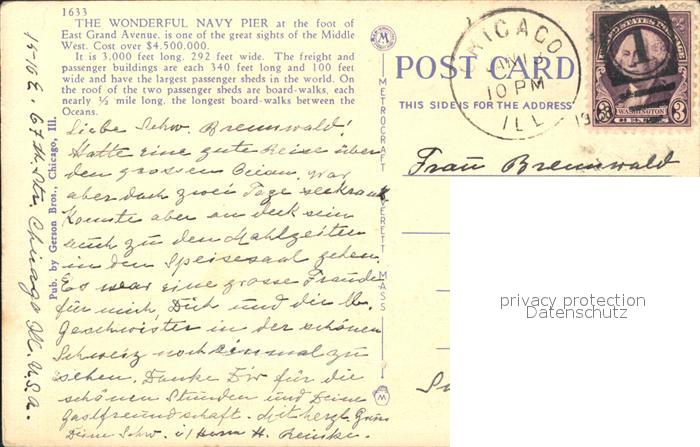 1633
THE WONDERFUL NAVY PIER at the foot of
East Grand Avenue, is one of the great sights of the Middle
West. Cost over $4,500,000.
It is 3,000 feet long, 292 feet wide. The freight and
passenger buildings are each 340 feet long and 100 feet
wide and have the largest passenger sheds in the world. On
the roof of the two passenger sheds are board-walks, each
nearly ½ mile long, the longest board-walks between the
Oceans.
Liebe Schw. Brennwald!
Hatte eine gute Reise über
den grossen Ocean, war
aber doch zwei Tage seekrank
Konnte aber an deck sein
auch zu den Mahlzeiten
in den Speisesaal gehen.
Es war eine grosse Freude
für mich, Dich und die lb.
Geschwister in der schönen
Schweiz noch einmal zu
sehen. Danke Dir für die
schönen Stunden und Deine
Gastfreundschaft. Mit herzl. Gruss
Deine Schw. i/Herrn H. Reinske.
1510 E. 67th Str. Chicago Ill. U.S.A.
Pub. by Gerson Bros., Chicago, Ill.
METROCRAFT
EVERETT
MASS
M
POST CARD
THIS SIDE IS FOR THE ADDRESS
CHICAGO
JAN
10 PM
ILL
UNITED STATES POSTAGE
1
WASHINGTON
3 3
CENTS
Frau Brennwald
privacy protection
Datenschutz